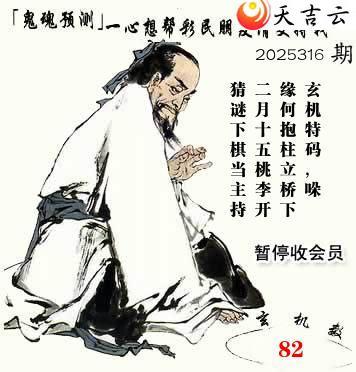 「鬼魂预测」一心想帮彩民朋
天吉云
2025316 期
玄机特码，哚
缘何抱柱立桥下
二月十五桃李开
猜谜下棋当主持
暂停收会员
玄机数
82